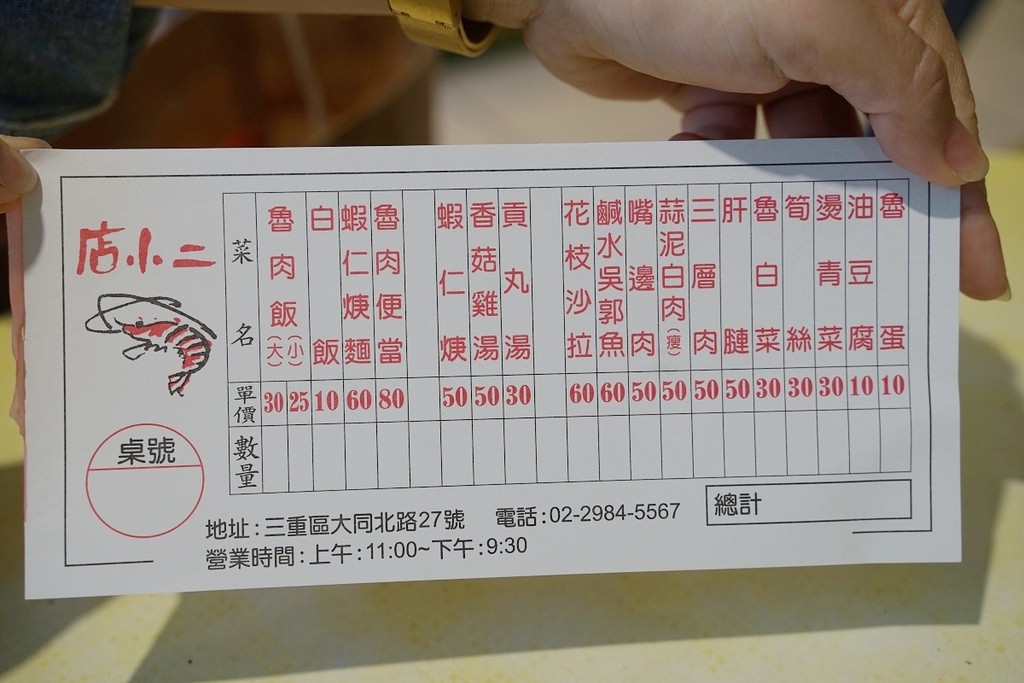 店小二
桌號
菜名
單價
數量
魯肉飯(大) 30
(小) 25
白飯 10
蝦仁焿麵 60
魯肉便當 80
蝦仁焿 50
香菇雞湯 50
貢丸湯 30
花枝沙拉 60
鹹水吳郭魚 60
嘴邊肉 50
蒜泥白肉(瘦) 50
三層肉 50
肝腱 50
魯白菜 30
筍絲 30
燙青菜 30
油豆腐 10
魯蛋 10
地址:三重區大同北路27號 電話:02-2984-5567
總計
營業時間:上午:11:00~下午:9:30